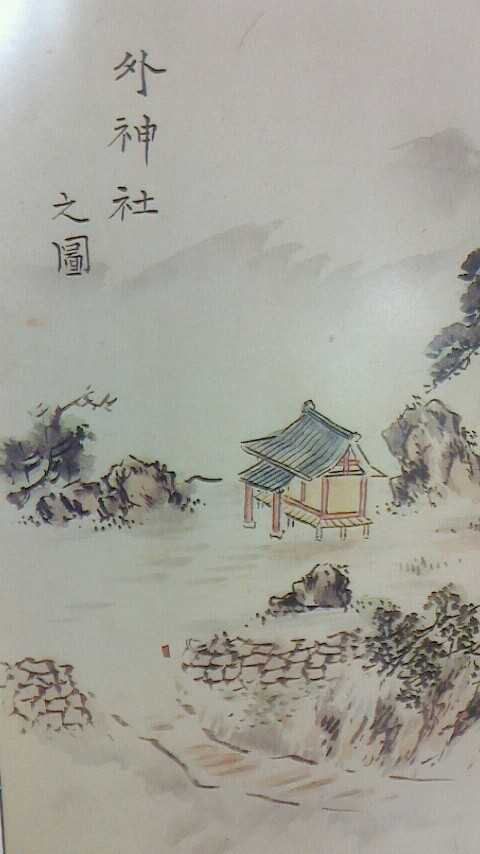 外神社
之圖